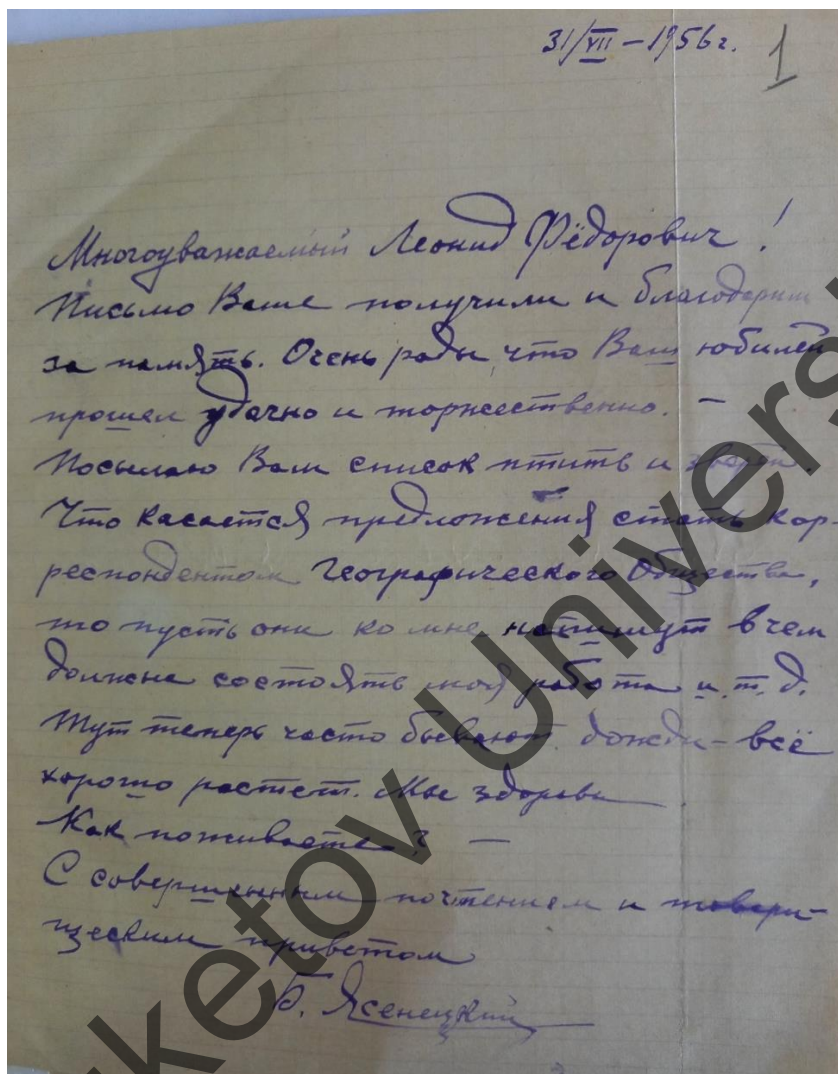 31/VII – 1956 г.
1
Многоуважаемый Леонид Фёдорович!
Письмо Ваше получили и благодарим
за память. Очень рады, что Ваш юбилей
прошел удачно и торжественно. –
Посылаю Вам список птить и зверей.
Что касается предложения стать кор
респондентом Географического Общества,
то пусть они ко мне напишут в чем
должна состоять моя работа и т. д.
Тут теперь часто бывают дожди – всё
хорошо растет. Мы здоровы
Как поживаете? –
С совершенным почтением и товари-
щеским приветом
Б. Ясенецкий
ketov Univers